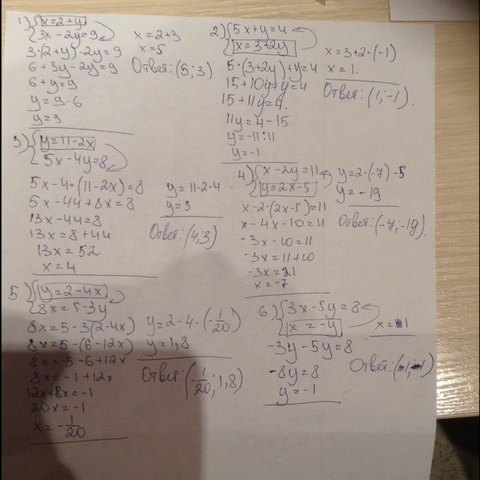 1) { x=2+y
3x-2y=9
3·(2+y)-2y=9
6+3y-2y=9
6+y=9
y=9-6
y=3
x=2+3
x=5
Ответ: (5;3)
2) { 5x+y=4
x=3+2y
5·(3+2y)+y=4
15+10y+y=4
15+11y=4
11y=4-15
y=-11:11
y=-1
x=3+2·(-1)
x=1.
Ответ: (1;-1).
3) { y=11-2x
5x-4y=8
5x-4·(11-2x)=8
5x-44+8x=8
13x-44=8
13x=8+44
13x=52
x=4
y=11-2·4
y=3
Ответ: (4;3)
4) { x-2y=11
y=2x-5
x-2·(2x-5)=11
x-4x-10=11
-3x-10=11
-3x=11+10
-3x=21
x=-7
y=2·(-7)-5
y=-19
Ответ: (-7;-19)
5) { y=2-4x
8x=5-3y
8x=5-3(2-4x)
8x=5-(6-12x)
8x=5-6+12x
8x=-1+12x
12x+8x=-1
20x=-1
x=-1/20
y=2-4·(1/20)
y=1,8
Ответ: (1/20;1,8)
6) { 3x-5y=8
x=-y
-3y-5y=8
-8y=8
y=-1
x=1
Ответ: